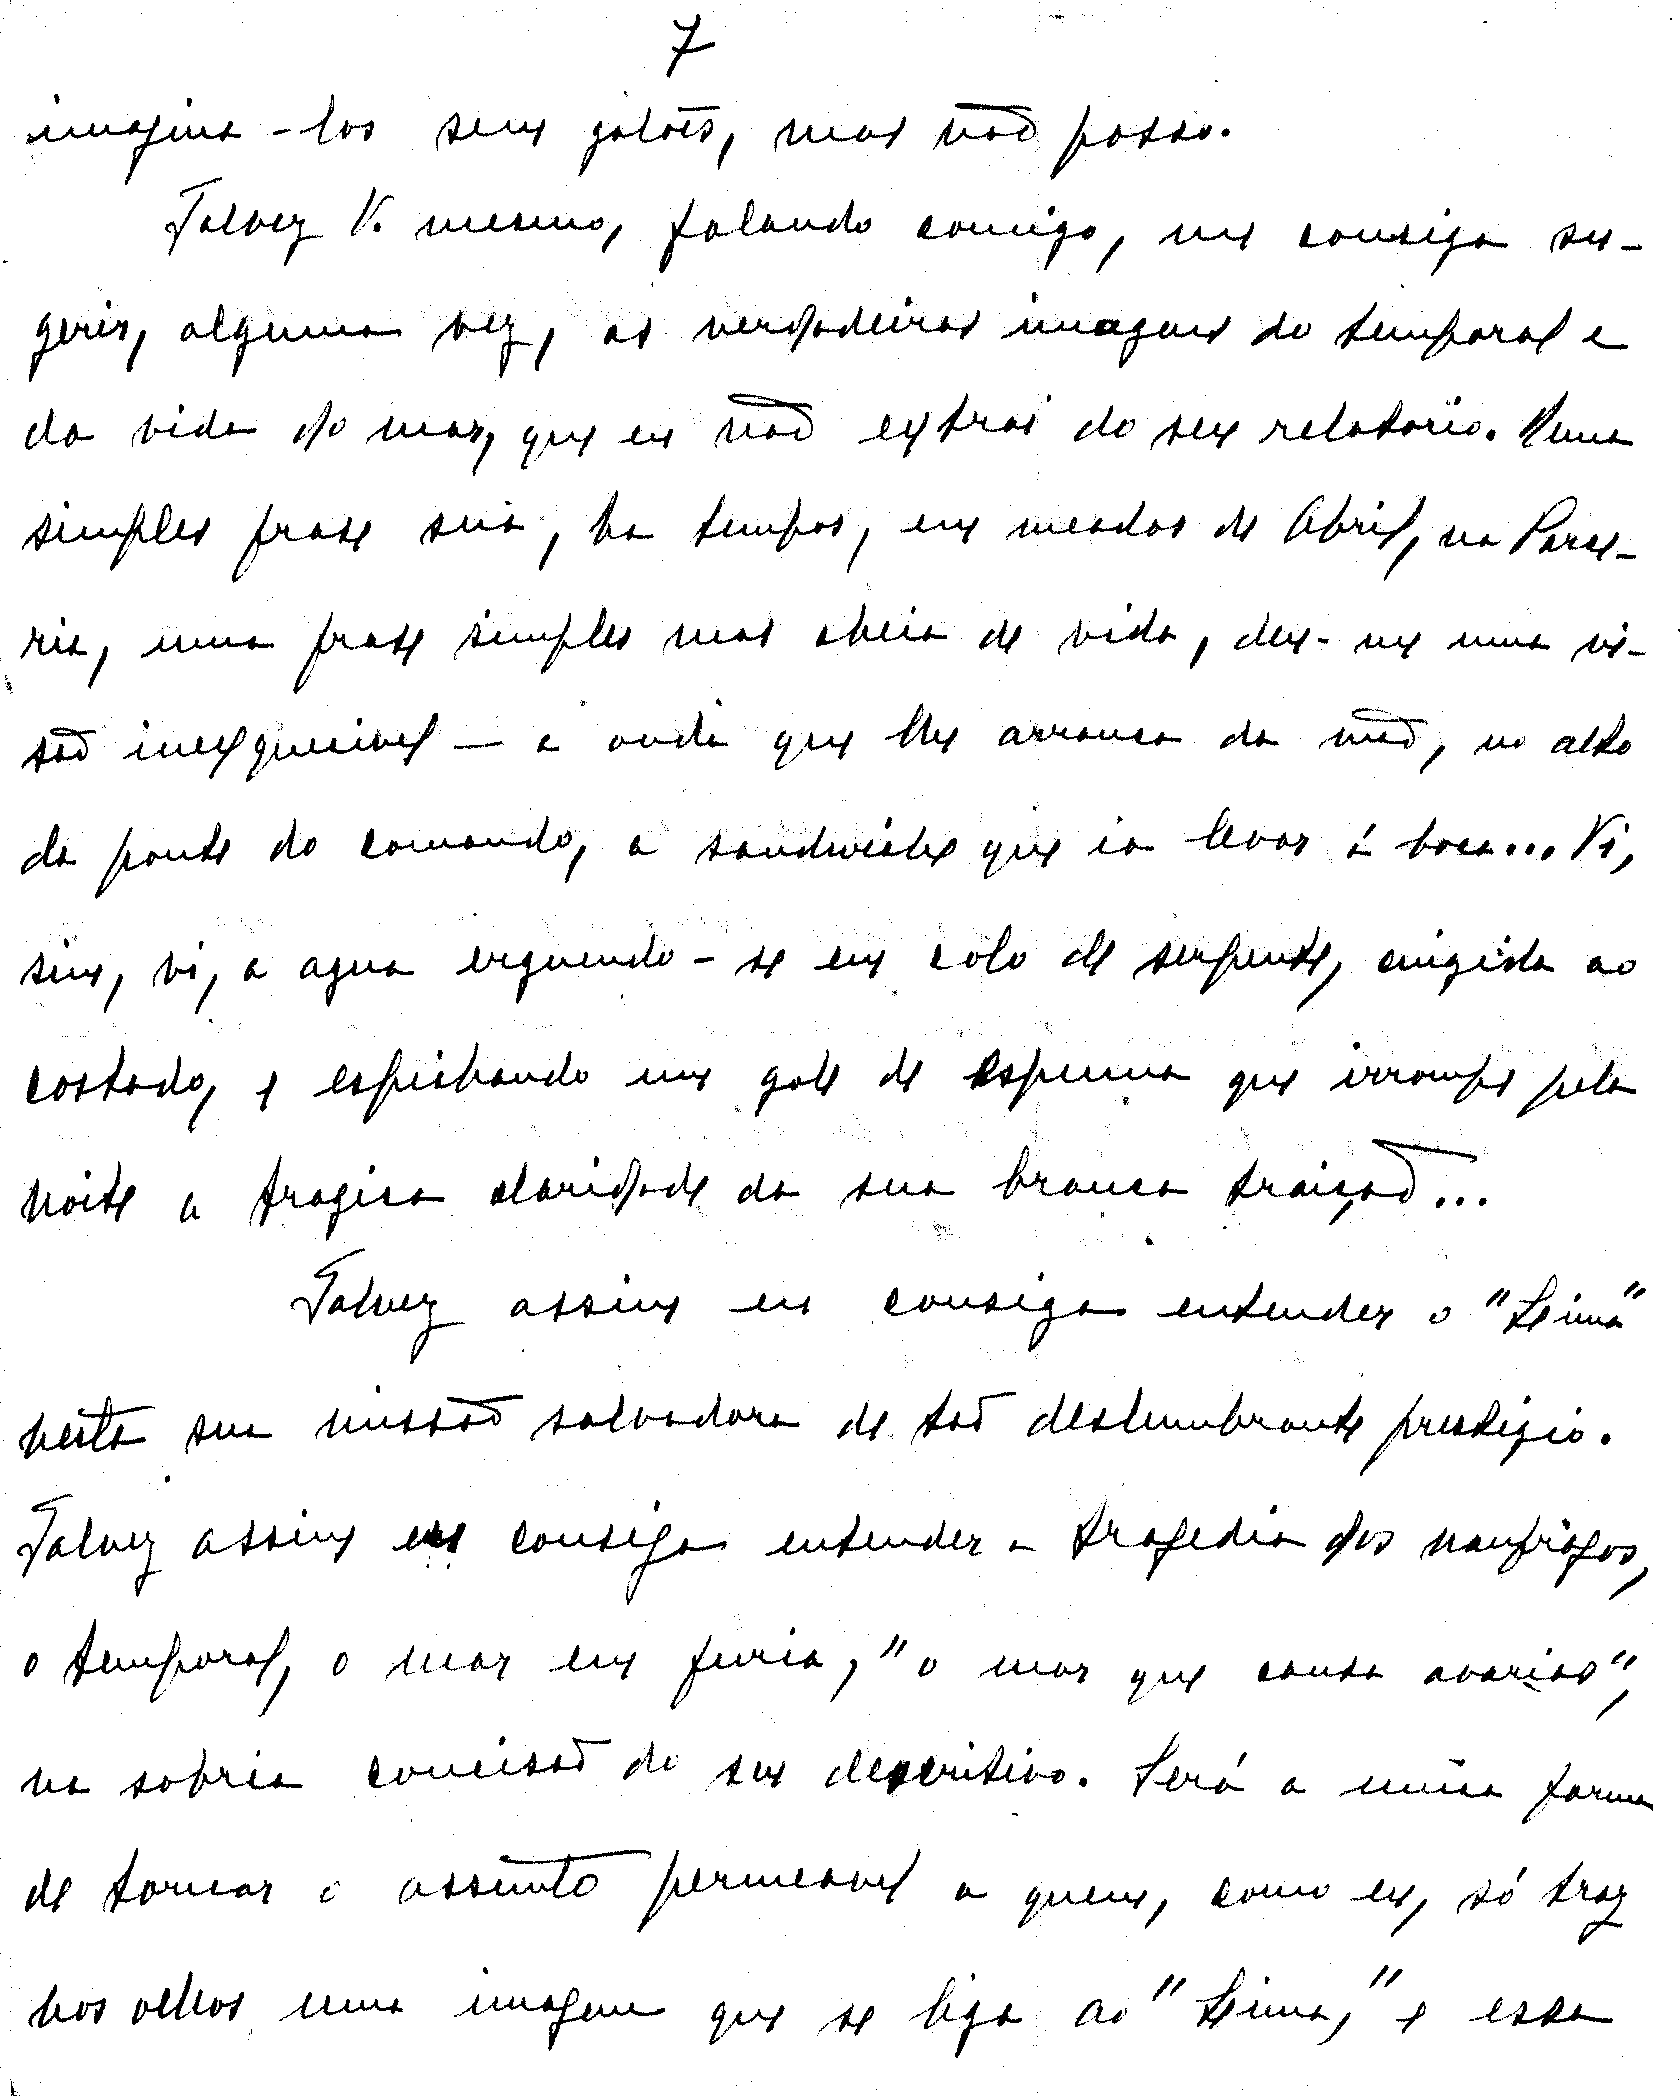 7
imagina-los sem galões, mas não posso.
Talvez V. mesmo, falando comigo, me consiga su-
gerir, alguma vez, as verdadeiras imagens do temporal e
da vida do mar, que eu não extraí do seu relatorio. Numa
simples frase sua, ha tempos, em meados de Abril, na Parce-
ria, uma frase simples mas cheia de vida, deu-me uma vi-
são inexquecivel — a onda que lhe arranca da mão, no alto
da ponte do comando, a sandwiche que ia levar á boca... Vi,
sim, vi, a agua erguendo-se em colo de serpente, cingida ao
costado, e espichando um gole de espuma que irrompe pela
noite a tragica claridade da sua branca traição...
Talvez assim eu consiga entender o "Lima"
nesta sua missão salvadora de tão deslumbrante prestigio.
Talvez assim eu consiga entender a tragedia dos naufragos,
o temporal, o mar em furia, "o mar que causa avarias",
na sobria concisão do seu descritivo. Será a unica forma
de tornar o assunto permeavel a quem, como eu, só traz
nos olhos uma imagem que se liga ao "Lima," e essa